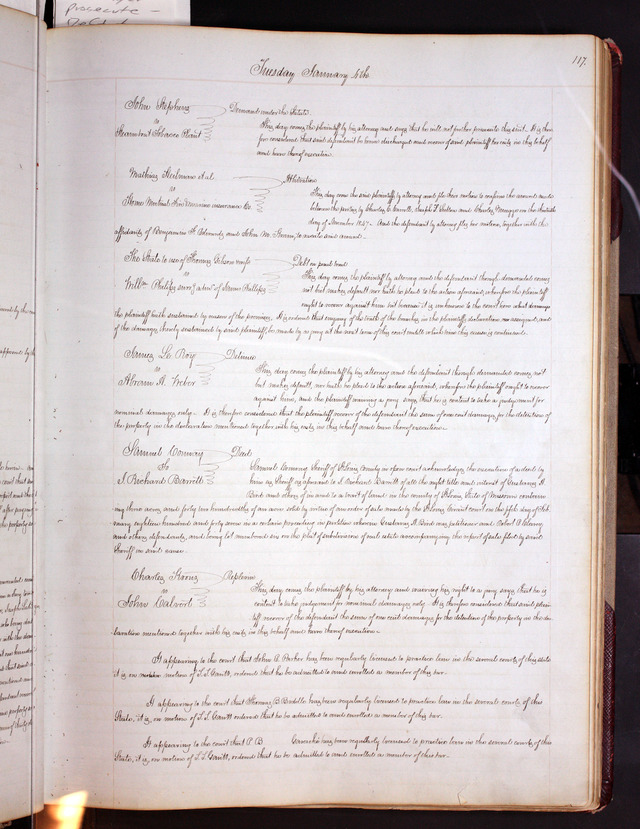 prosecute -
117.
Tuesday January 4th
John Stephens
vs
Steamboat Tobacco Plant
Demand under the Statute
This day comes the plaintiff by his attorney and says that he will not further prosecute this suit. It is there
fore considered that said defendant be hence discharged and recover of said plaintiff his costs in this behalf
and have thereof execution.
et al
vs
Home Mutual Fire & Marine insurance Co
Arbitration
This day come the said plaintiffs by attorney and file their motion to confirm the award made
between the parties by Charles Joseph and Charles on the
day of November 1847. And the defendant by attorney files his motion, together with the
affidavits of Benjamin and John M. to vacate said award.
The State to use of Thomas
vs
Phillips
Debt on penal bond
This day comes the plaintiff by attorney and the defendant though demanded comes
not but makes default, nor hath he plead to the action aforesaid, wherefore the plaintiff
ought to recover against him but because it is unknown to the court here what damages
the plaintiff hath sustained by reason of the premises, It is ordered that enquiry of the truth of the breaches, in the plaintiffs declaration assigned, and
of the damages thereby sustained by said plaintiff, be made by a jury at the next term of this court until which time this cause is continued.
James Le Roy
vs
Abram A.
Detinue
This day comes the plaintiff by his attorney and the defendant though demanded comes not
but makes default, nor hath he plead to the action aforesaid, wherefore the plaintiff ought to recover
against him, and the plaintiff waiving a jury says that he is content to take a judgement for
nominal damages only. It is therefore considered that the plaintiff recover of the defendant the sum of one cent damages, for the detention of
the property in the declaration mentioned together with his costs in this behalf and have thereof execution.
Samuel Conway
To
J Richard Barrett
Deed
Samuel Conway Sheriff of St Louis County in open court acknowledges the execution of a deed by
him as Sheriff as aforesaid to J. Richard Barrett of all the right title and interest of Gustavus A.
Bird and others of in and to a tract of land in the county of St Louis, State of Missouri containing
three acres and forty two hundredths of an acre sold by virtue of an order of sale made by the St Louis circuit court on the fifth day of Feb
ruary eighteen hundred and forty seven in a certain proceeding in partition wherein Gustavus A. Bird was petitioner and Robert
and others, defendants, and being lot numbered six on the plat of subdivision of said estate accompanying the report of sale filed by said
Sheriff in said cause.
Charles
vs
John Calvert
Replevin
This day comes the plaintiff by his attorney and waiving his right to a jury says that he is
content to take judgement for nominal damages only. It is therefore considered that said plain
tiff recover of the defendant the sum of one cent damages, for the detention of the property in the de
claration mentioned together with his costs in this behalf and have thereof execution.
It appearing to the court that John A. Parker has been regularly licensed to practice law in the several courts of this state
it is, on motion of T. T. Gantt, ordered that he be admitted to and enrolled as member of this bar.
It appearing to the court that Thomas B. has been regularly licensed to practice law in the several courts of this
State, it is, on motion of T. T. Gantt ordered that he be admitted to and enrolled as member of this bar.
It appearing to the court that P B has been regularly licensed to practice law in the several courts, of this
State, it is, on motion of T. T. Gantt, ordered that he be admitted to and enrolled as member of this bar.